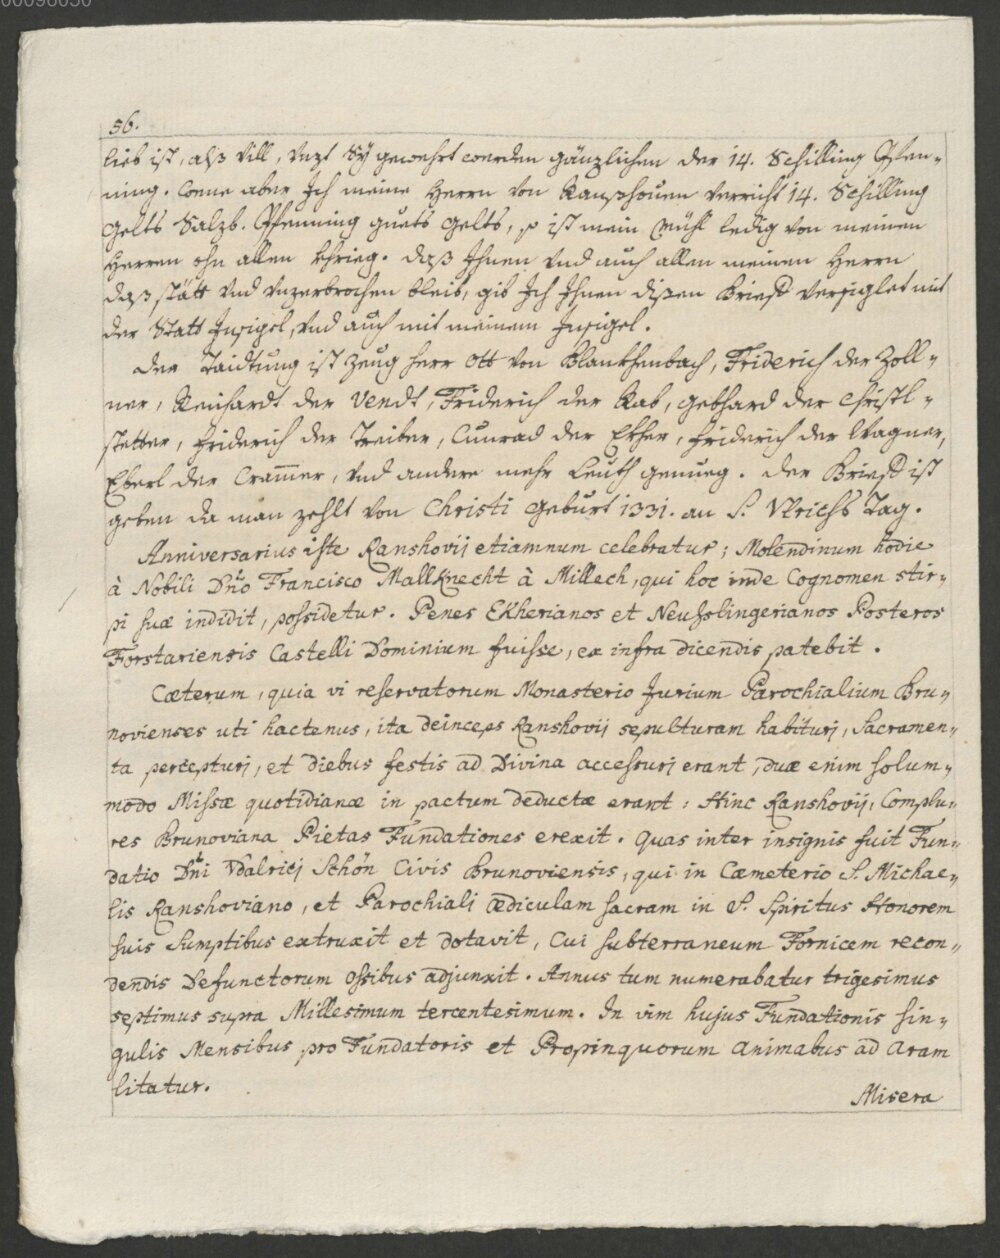 00096050
56.
lieb ist, alß Vill, Unzt Sÿ gewehrt werden gänzlichen der 14. Schilling Pfen-
ning. Wenn aber Ich meine Herrn von Ranßhouen Verricht 14. Schilling
Gelts Salzb. Pfenning guets Gelts, so ist mein Mühl ledig von meinen
Herren ohn allen Khrieg. daß Ihnen Vnd auch allen meinen Herrn
daß stätt Vnd Vnzerbrochen bleib, gib Ich Ihnen disen Brieff Versiglet mit
der Statt Insigel, Vnd auch mit meinem Insigel.
Der Taidtung ist Zeug Herr Ott von Blankhenbach, Friderich der Zoll-
ner, Reichardt der Vendt, Friderich der Rab, Gebhard der Christl-
stetter, Friderich der Treiber, Cunrad der Ekher, Friderich der Wagner,
Eberl der Cram̅er, Vnd andere mehr Leuth genueg. Der Brieff ist
geben da man zehlt von Christi Geburt 1331. an S. Vlrichs Tag.
Anniversarius iste Ranshovij etiamnum celebratur; Molendinum hodie
à Nobili Dno Francisco Mallknecht à Millech, qui hoc inde Cognomen stir-
pi suæ indidit, possidetur. Penes Ekherianos et Neuhslingerianos Posteros
Forstariensis Castelli Dominium fuisse, ex infra dicendis patebit.
Cæterum, quia vi reservatorum Monasterio Jurium Parochialium Bru-
novienses uti hactenus, ita deinceps Ranshovij sepulturam habiturj, Sacramen-
ta percepturj, et diebus festis ad Divina accessurj erant, duæ enim solum-
modo Missæ quotidianæ in pactum deductæ erant: Hinc Ranshovij, Complu-
res Brunoviana Pietas Fundationes erexit. Quas inter insignis fuit Fun-
datio Dni Vdalricj Schön Civis Brunoviensis, qui in Cæmeterio S. Michae-
lis Ranshoviano, et Parochiali ædiculam sacram in S. Spiritus Honorem
suis Sumptibus extruxit et dotavit, Cui subterraneum Fornicem recon-
dendis Defunctorum Ossibus adjunxit. Annus tum numerabatur trigesimus
septimus supra Millesimum tercentesimum. In vim hujus Fundationis sin-
gulis Mensibus pro Fundatoris et Propinquorum animabus ad Aram
litatur.
Misera